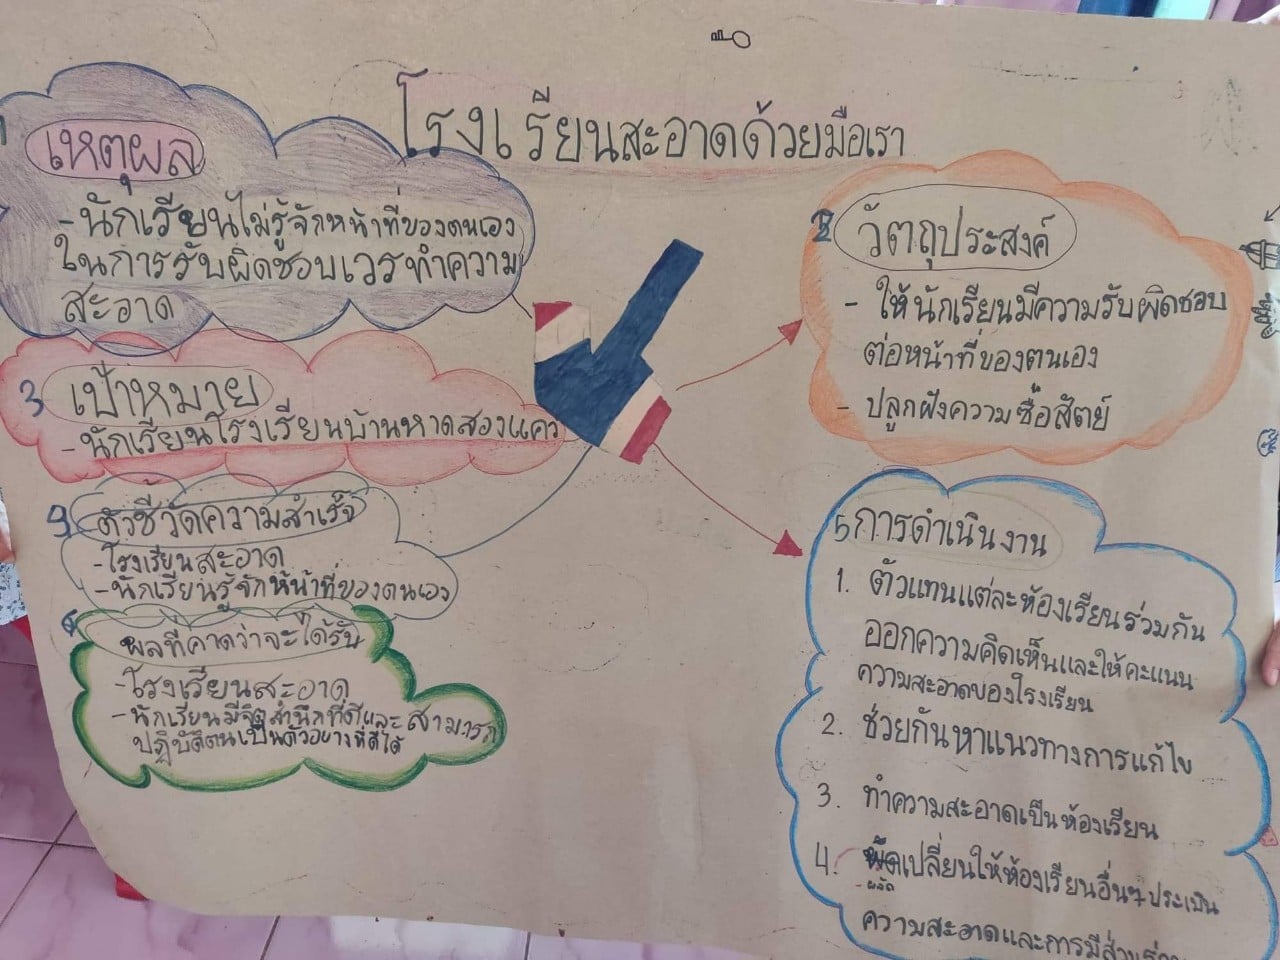 โรงเรียนสะอาดด้วยมือเรา
เหตุผล
- นักเรียนไม่รู้จักหน้าที่ของตนเอง
ในการรับผิดชอบเวรทำความ
สะอาด
2 วัตถุประสงค์
- ให้นักเรียนมีความรับผิดชอบ
ต่อหน้าที่ของตนเอง
- ปลูกฝังความซื่อสัตย์
3 เป้าหมาย
- นักเรียนโรงเรียนบ้านหาดสองแคว
4 ตัวชี้วัดความสำเร็จ
- โรงเรียนสะอาด
- นักเรียนรู้จักหน้าที่ของตนเอง
5 การดำเนินงาน
1. ตัวแทนแต่ละห้องเรียนร่วมกัน
ออกความคิดเห็นและให้คะแนน
ความสะอาดของโรงเรียน
2. ช่วยกันหาแนวทางการแก้ไข
3. ทำความสะอาดเป็นห้องเรียน
4. ผลัดเปลี่ยนให้ห้องเรียนอื่นๆ ประเมิน
ความสะอาดและการมีส่วนร่วม
6 ผลที่คาดว่าจะได้รับ
- โรงเรียนสะอาด
- นักเรียนมีจิตสำนึกที่ดีและสามารถ
ปฏิบัติตนเป็นตัวอย่างที่ดีได้